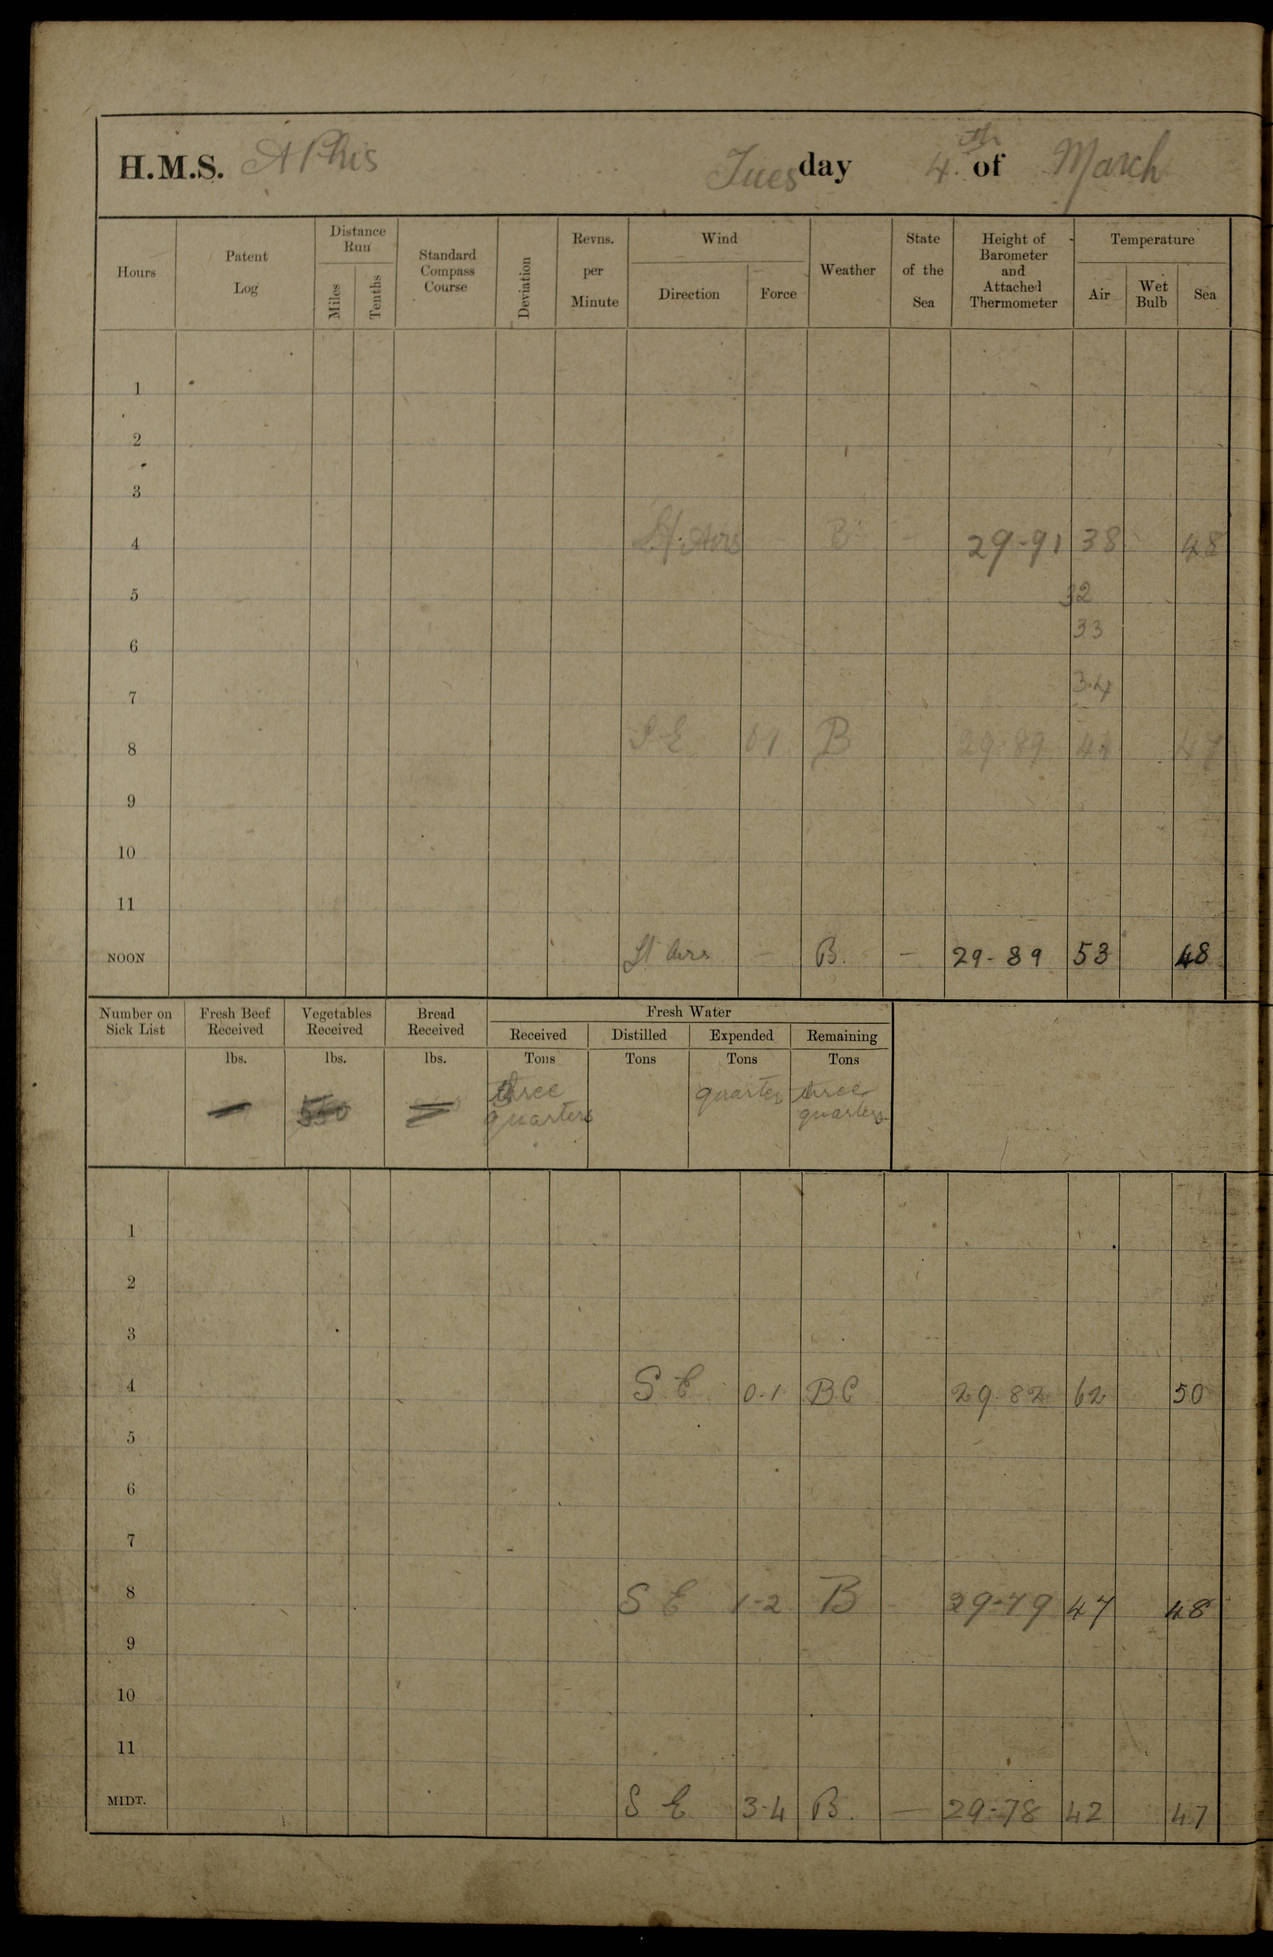 H.M.S. APhis Tuesday 4.th of March
Hours Patent Log Distance Run Miles Tenths Standard Compass Course Deviation Revns. per Minute Wind Direction Force Weather State of the Sea Height of Barometer and Attached Thermometer Temperature Air Wet Bulb Sea
1
2
3
4 Lt. Airs - B - 29-91 38 48
5 32
6 33
7 34
8 S E 0-1 B 29-89
9
10
11
NOON Lt Airs - B. - 29-89 53 48
Number on Sick List Fresh Beef Received Vegetables Received Bread Received Fresh Water
Received Distilled Expended Remaining
lbs. lbs. lbs. Tons Tons Tons Tons
three quarters quarter three quarters
1
2
3
4 S E 0-1 BC 29-82 62 50
5
6
7
8 S E 1-2 B - 29-79 47 48
9
10
11
MIDT. S E 3-4 B. - 29-78 42 47